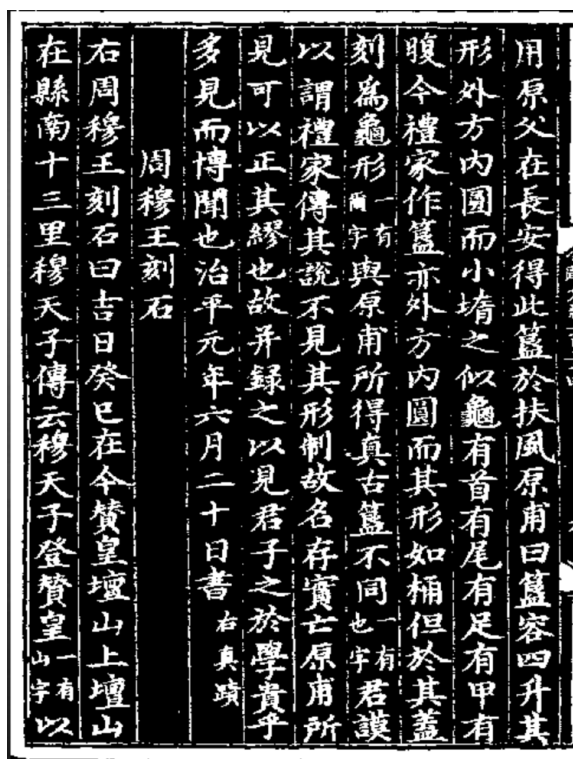 用原父在長安得此簋於扶風原甫曰簋容四升其
形外方内圓而小墮之似龜有首有尾有足有甲有
腹今禮家作簋亦外方内圓而其形如桶但於其蓋
刻爲龜形一有爾字與原甫所得真古簋不同一有也字君謨
以謂禮家傳其說不見其形制故名存實亡原甫所
見可以正其繆也故并録之以見君子之於學貴乎
多見而博聞也治平元年六月二十日書右真蹟
周穆王刻石
右周穆王刻石曰吉日癸巳在今贊皇壇山上壇山
在縣南十三里穆天子傳云穆天子登贊皇一有山字以